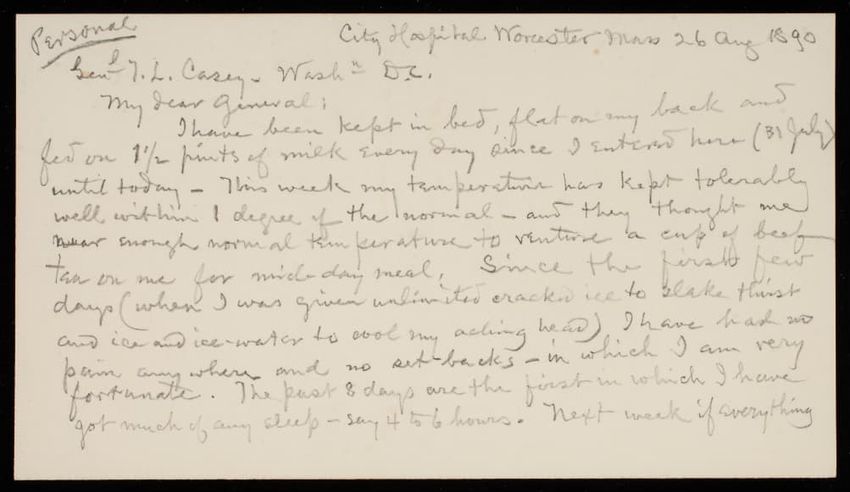 Personal
City Hospital Worcester Mass 26 Aug 1890
Genl T. L. Casey - Washn D.C.
My dear General:
I have been kept in bed, flat on my back and
fed on 1 1/2 pints of milk every day since I entered here (31 July)
until today - This week my temperature has kept tolerably
well within 1 degree of the normal - and they thought me
near enough normal temperature to venture a cup of beef
tea on me for mid-day meal. Since the first few
days (when I was given unlimited cracked ice to slake thirst
and ice and ice-water to cool my aching head) I have had no
pain anywhere and no set-backs - in which I am very
fortunate. The past 8 days are the first in which I have
got much of any sleep - say 4 to 6 hours. Next week if everything